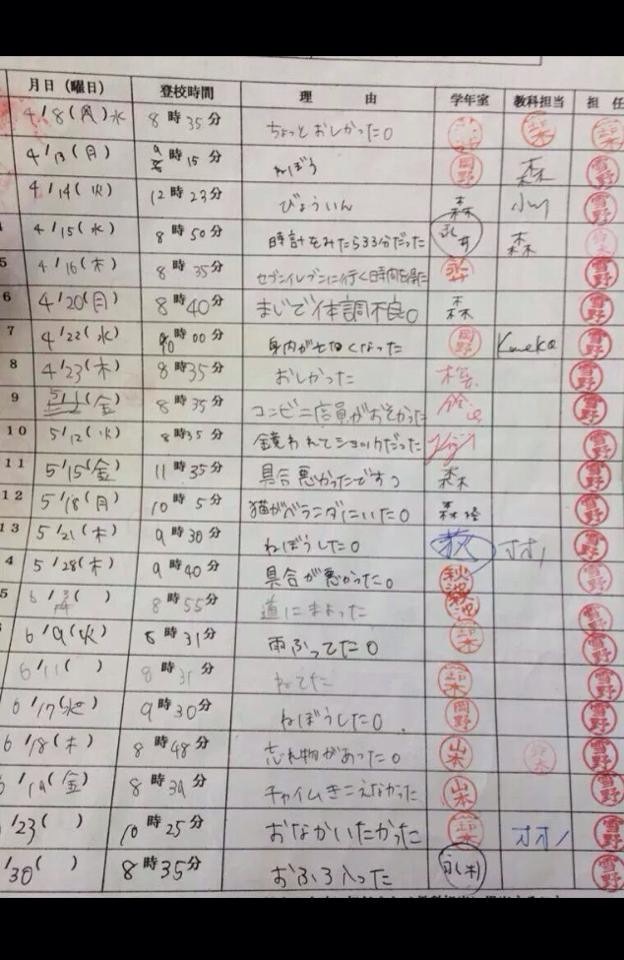 月日(曜日) 登校時間 理由 学年室 教科担当 担任
4/8(月)水 8時35分 ちょっとおしかった。
4/13(月) 9時15分 ねぼう 岡野 森 雪野
4/14(火) 12時23分 びょういん 森 小川 雪野
4/15(水) 8時50分 時計をみたら33分だった 永井 森
5 4/16(木) 8時35分 セブンイレブンに行く時間を得た 雪野
6 4/20(月) 8時40分 まじで体調不良。 森 雪野
7 4/22(水) 10時00分 身内が亡くなった 岡野 雪野
8 4/23(木) 8時35分 おしかった 雪野
9 5/1(金) 8時35分 コンビニ店員がおそかった 雪野
10 5/12(火) 8時35分 鏡われてショックだった 雪野
11 5/15(金) 11時35分 具合悪かったです 森 雪野
12 5/18(月) 10時5分 猫がベランダにいた。 森 雪野
13 5/21(木) 9時30分 ねぼうした。 荻 オオノ 雪野
4 5/28(木) 9時40分 具合が悪かった。 雪野
5 6/ ( ) 8時55分 道にまよった 雪野
6/9(火) 8時31分 雨ふってた。 雪野
6/11( ) 8時31分 ねてた 雪野
6/17(水) 9時30分 ねぼうした。 岡野 雪野
6/18(木) 8時48分 忘れ物があった。 山本 雪野
6/19(金) 8時39分 チャイムきこえなかった 山本 雪野
/23( ) 10時25分 おなかいたかった オオノ 雪野
/30( ) 8時35分 おふろ入った 雪野